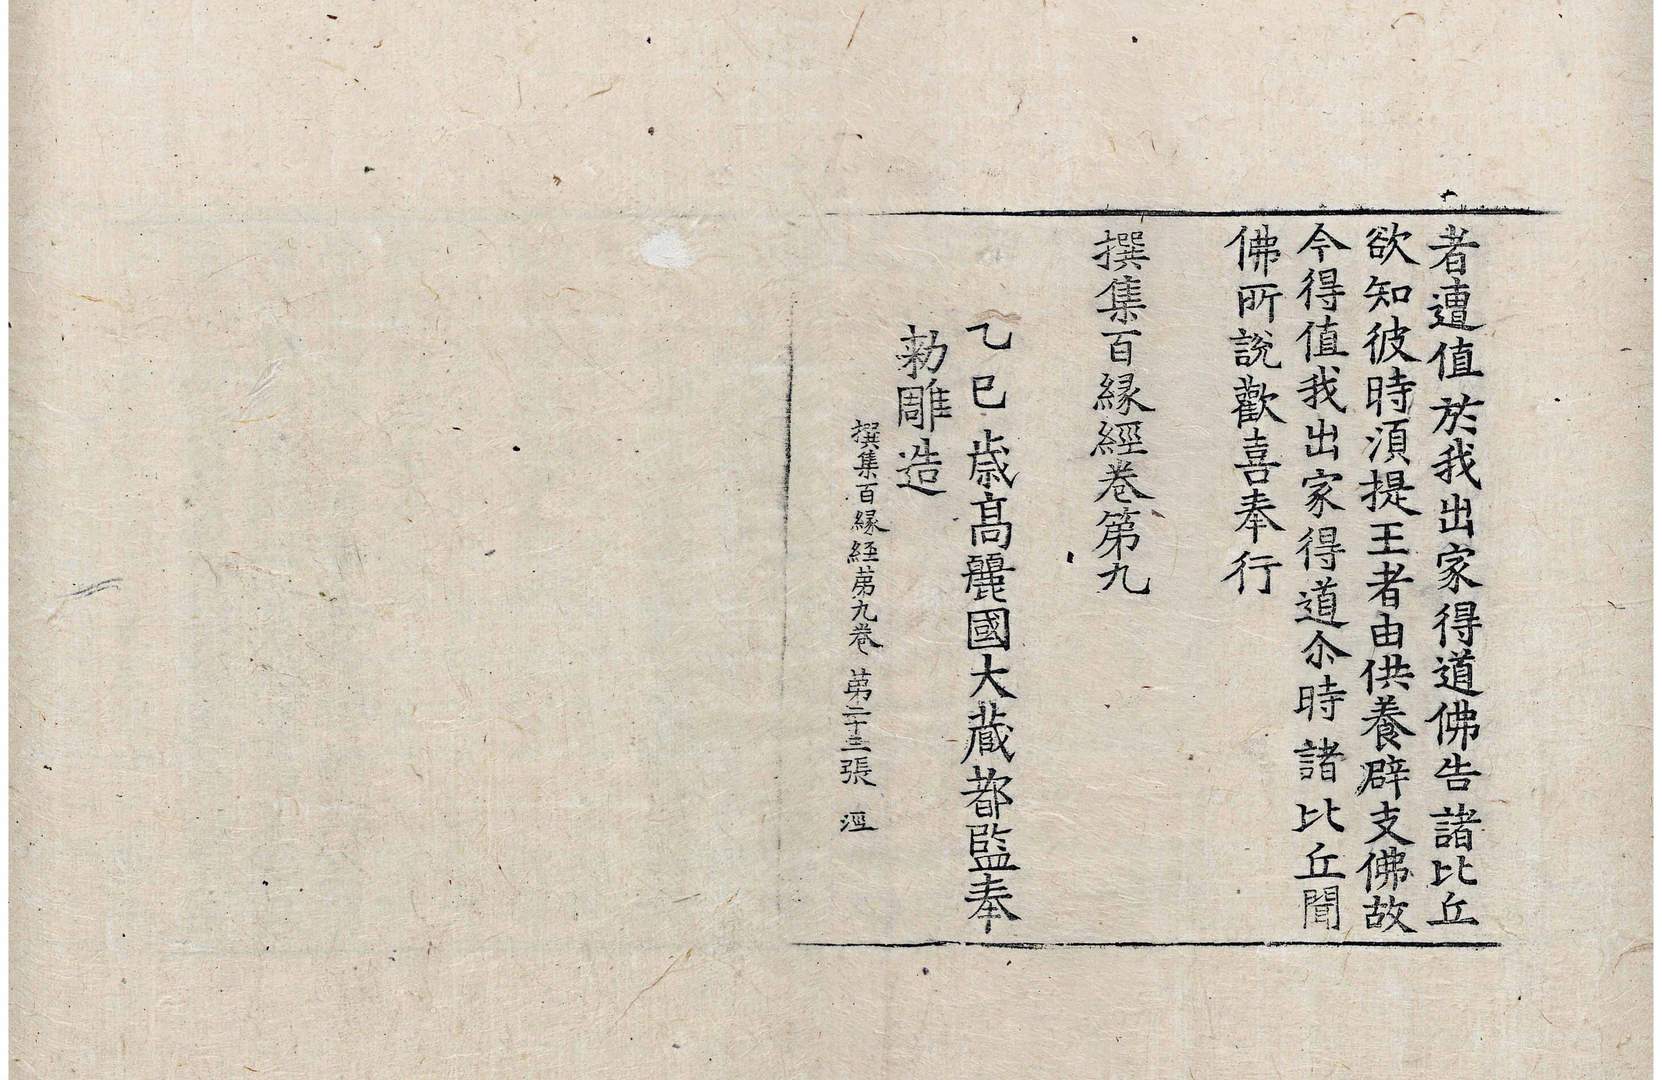 者遭值於我出家得道佛告諸比丘
欲知彼時湏提王者由供養辟支佛故
今得值我出家得道尒時諸比丘聞
佛所說歡喜奉行
撰集百縁經卷第九
乙巳歳髙麗國大藏都監奉
勑雕造
撰集百縁経苐九卷 苐二十三張 涇